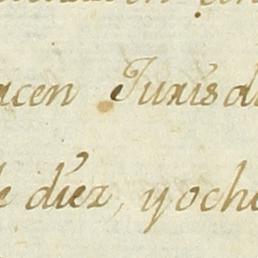 acen Jurisd
e diez, y oche